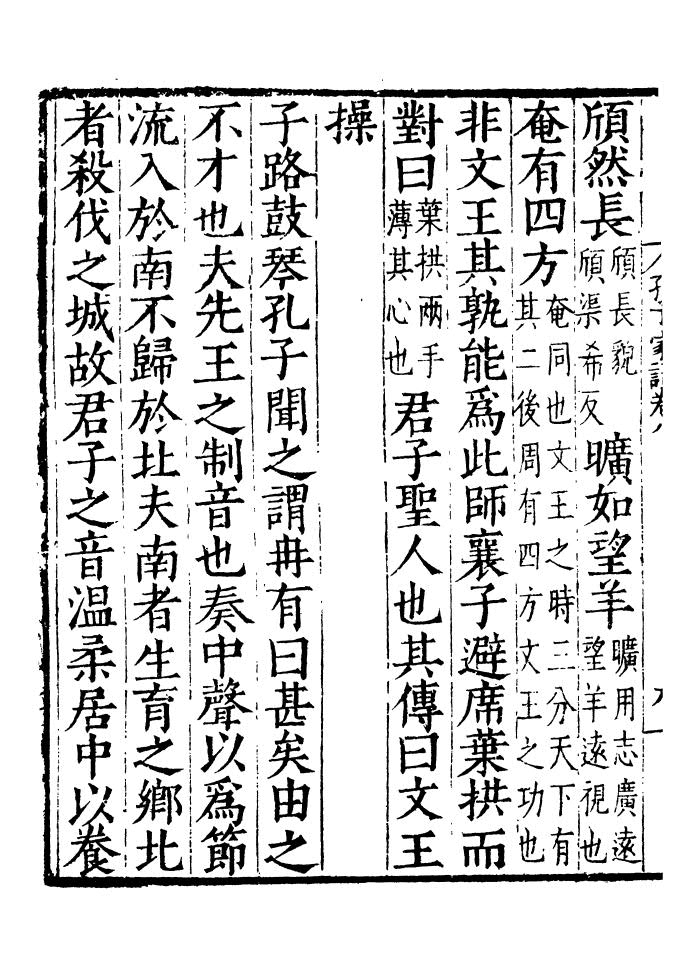 孔子家語卷八
頎然長頎長貌頎渠希反曠如望羊曠用志廣遠望羊遠視也
奄有四方奄同也文王之時三分天下有其二後周有四方文王之功也
非文王其孰能爲此師襄子避席葉拱而
對曰葉拱兩手薄其心也君子聖人也其傳曰文王
操
子路鼓琴孔子聞之謂冉有曰甚矣由之
不才也夫先王之制音也奏中聲以爲節
流入於南不歸於北夫南者生育之鄉北
者殺伐之城故君子之音溫柔居中以養